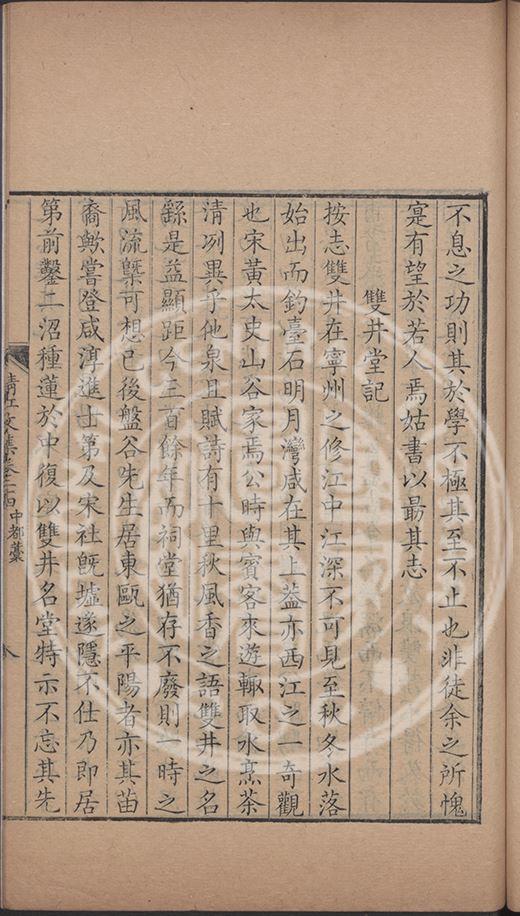 不息之功則其於學不極其至不止也非徒余之所愧
寔有望於若人焉姑書以勗其志
雙井堂記
按志雙井在寧州之修江中江深不可見至秋冬水落
始出而釣臺石明月灣咸在其上葢亦西江之一奇觀
也宋黃太史山谷家焉公時與賓客來遊輙取水烹茶
清冽異乎他泉且賦詩有十里秋風香之語雙井之名
繇是益顯距今三百餘年而祠堂猶存不廢則一時之
風流槩可想已後盤谷先生居東甌之平陽者亦其苗
裔歟嘗登咸淳進士第及宋社旣墟遂隱不仕乃即居
第前鑿二沼種蓮於中復以雙井名堂特示不忘其先
清江文集卷二十四 中都藁